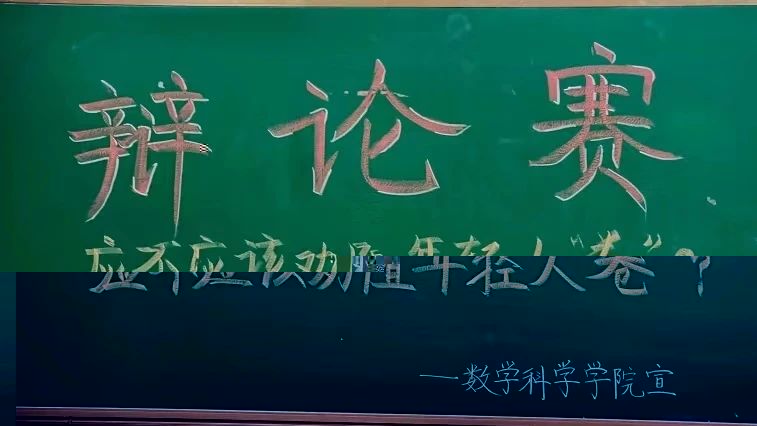 辩论赛
应不应该劝阻年轻人"卷"?
—数学科学学院宣